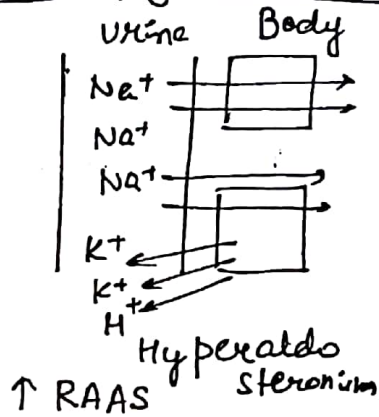 Urine Body
Na⁺
Na⁺
Na⁺
K⁺
K⁺
H⁺
Hyperaldo
steronism
↑ RAAS